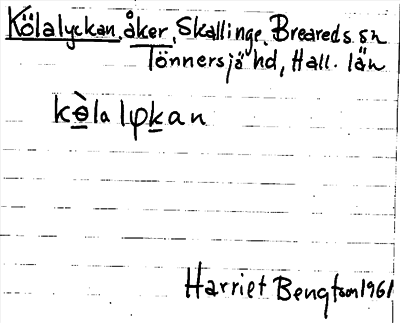 Kölalyckan, åker, Skallinge, Breareds sn
Tönnersjö hd, Hall. län
kө̀la lφkan
Harriet Bengtson 1961